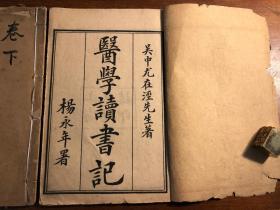 吴中尤在涇先生著
醫學讀書記
楊永年署
卷下